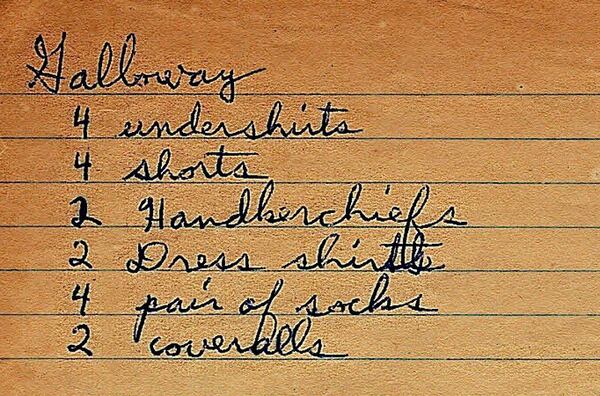 Galloway
4 undershirts
4 shorts
2 Handkerchiefs
2 Dress shirts
4 pair of socks
2 coveralls